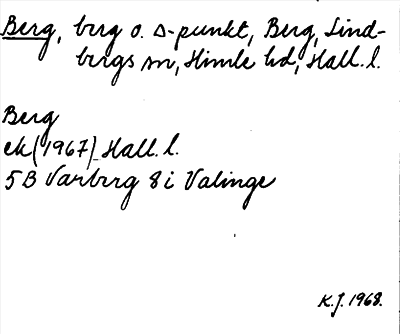 Berg, berg o. s-punkt, Berg, Lind-
bergs sn, Himle hd, Hall. l.
Berg
ek (1967) Hall. l.
5B Varberg 8i Valinge
K.J. 1968.